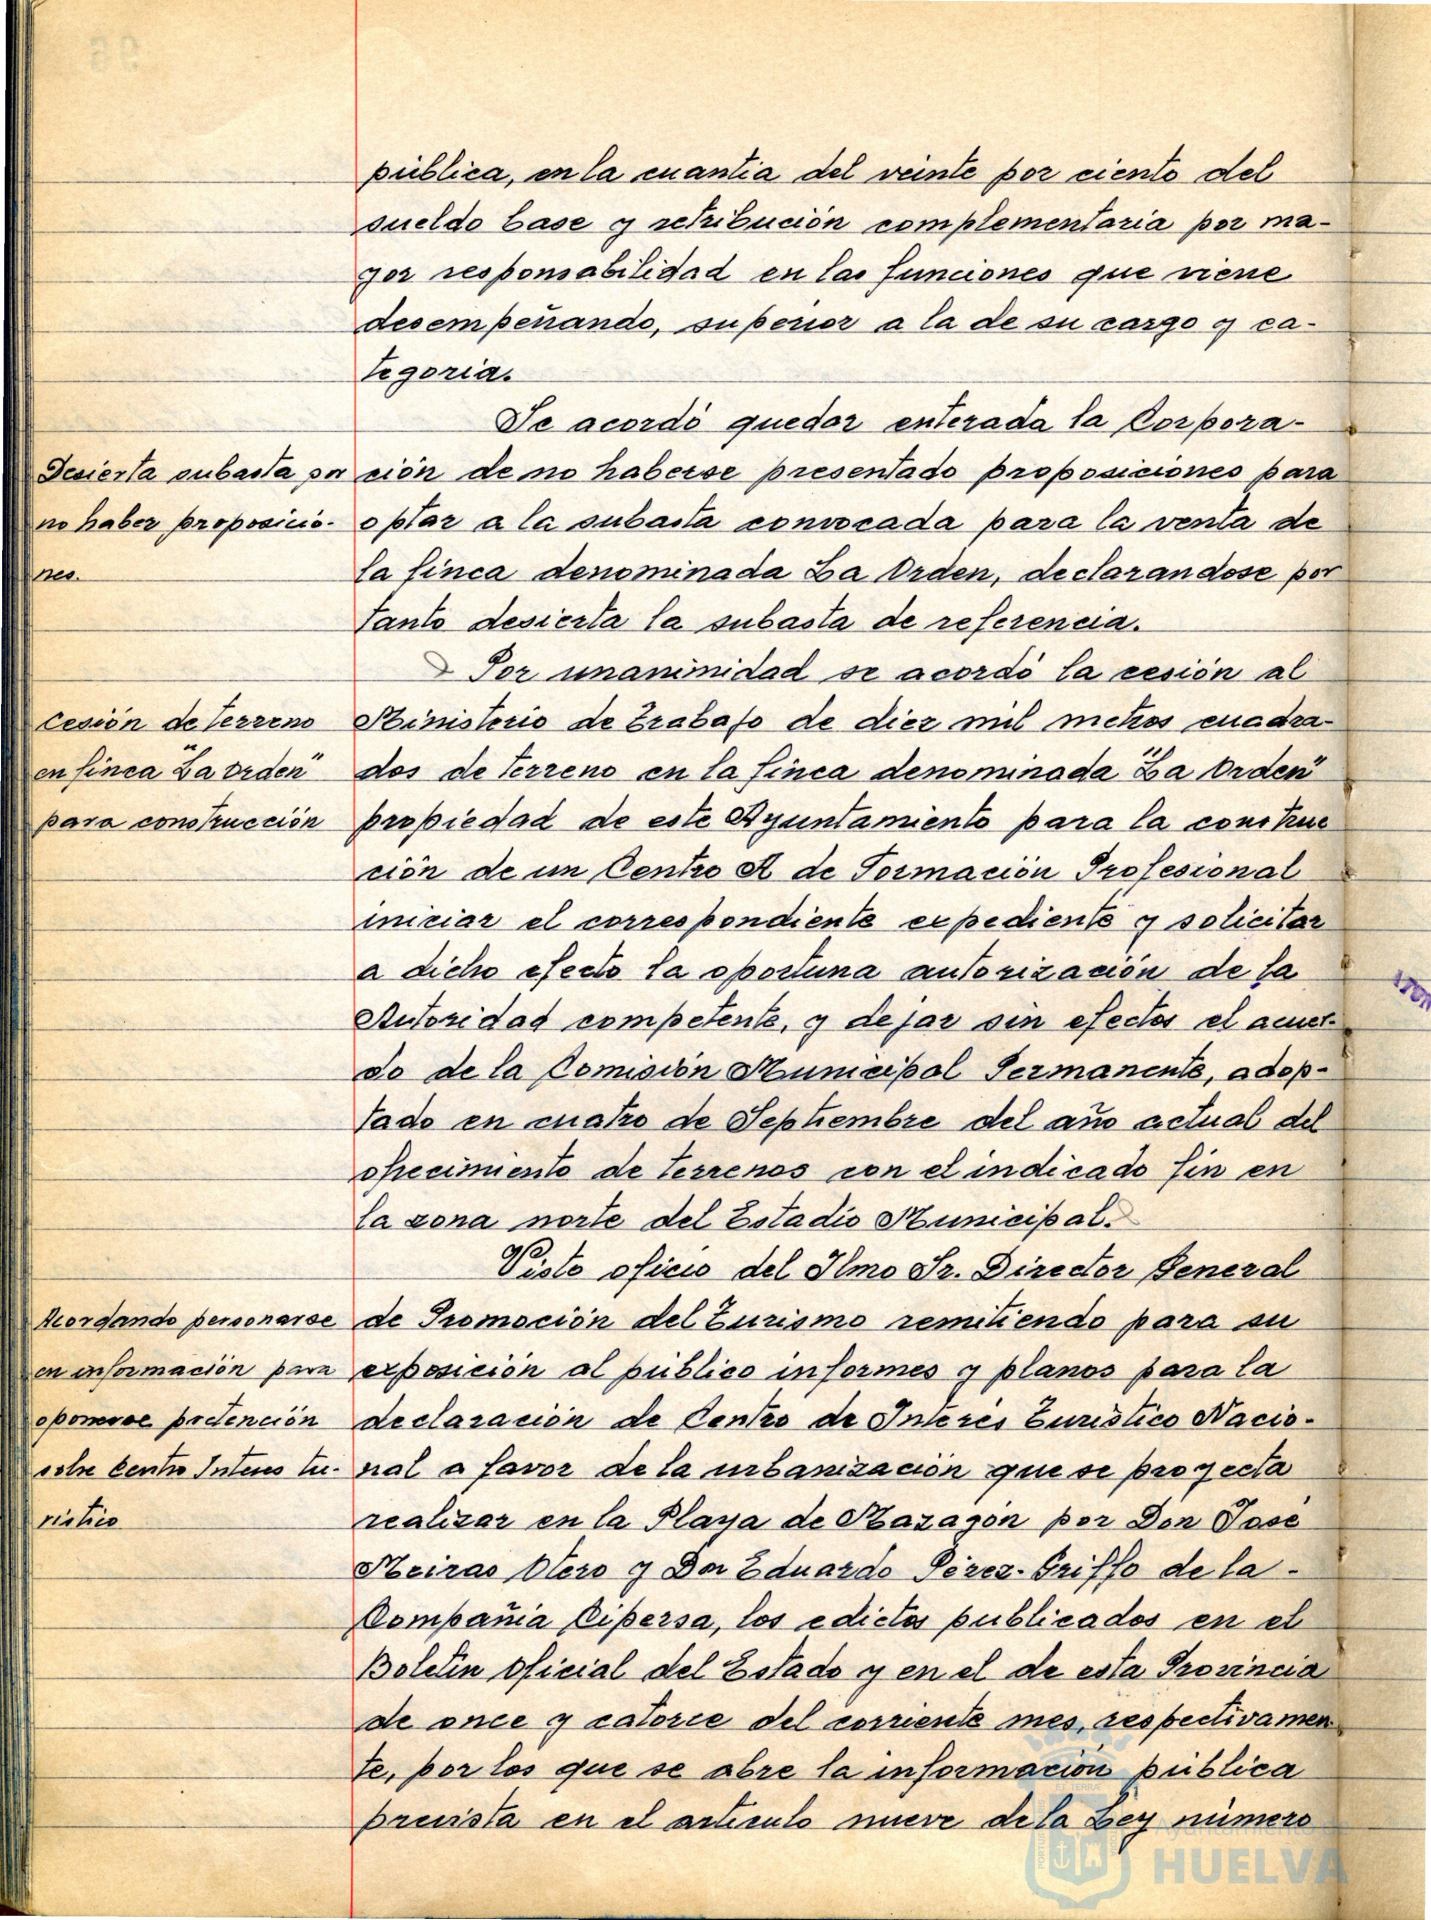 pública, en la cuantia del veinte por ciento del
sueldo base y retribución complementaria por ma-
yor responsabilidad en las funciones que viene
desempeñando, superior a la de su cargo y ca-
tegoria.
Se acordó quedar enterada la Corpora-
Desierta subasta por
no haber proposicio-
nes.
ción de no haberse presentado proposiciones para
optar a la subasta convocada para la venta de
la finca denominada La Orden, declarandose por
tanto desierta la subasta de referencia.
Por unanimidad se acordó la cesión al
Cesión de terreno
en finca "La Orden"
para construcción
Ministerio de Trabajo de diez mil metros cuadra-
dos de terreno en la finca denominada "La Orden"
propiedad de este Ayuntamiento para la construc
ción de un Centro A de Formación Profesional
iniciar el correspondiente expediente y solicitar
a dicho efecto la oportuna autorización de la
Autoridad competente, y dejar sin efectos el acuer-
do de la Comisión Municipal Permanente, adop-
tado en cuatro de Septiembre del año actual del
ofrecimiento de terrenos con el indicado fin en
la zona norte del Estadio Municipal.
Visto oficio del Ilmo Sr. Director General
Acordando personarse
en información para
oponerse pretención
sobre Centro Interes tu-
ristico
de Promoción del Turismo remitiendo para su
exposición al público informes y planos para la
declaración de Centro de Interés Turistico Nacio-
nal a favor de la urbanización que se proyecta
realizar en la Playa de Mazagón por Don José
Meiras Otero y Don Eduardo Pérez-Griffo de la -
Compañia Cipersa, los edictos publicados en el
Boletin Oficial del Estado y en el de esta Provincia
de once y catorce del corriente mes, respectivamen-
te, por los que se abre la información pública
prevista en el articulo nueve de la Ley número
Ayuntamiento
HUELVA